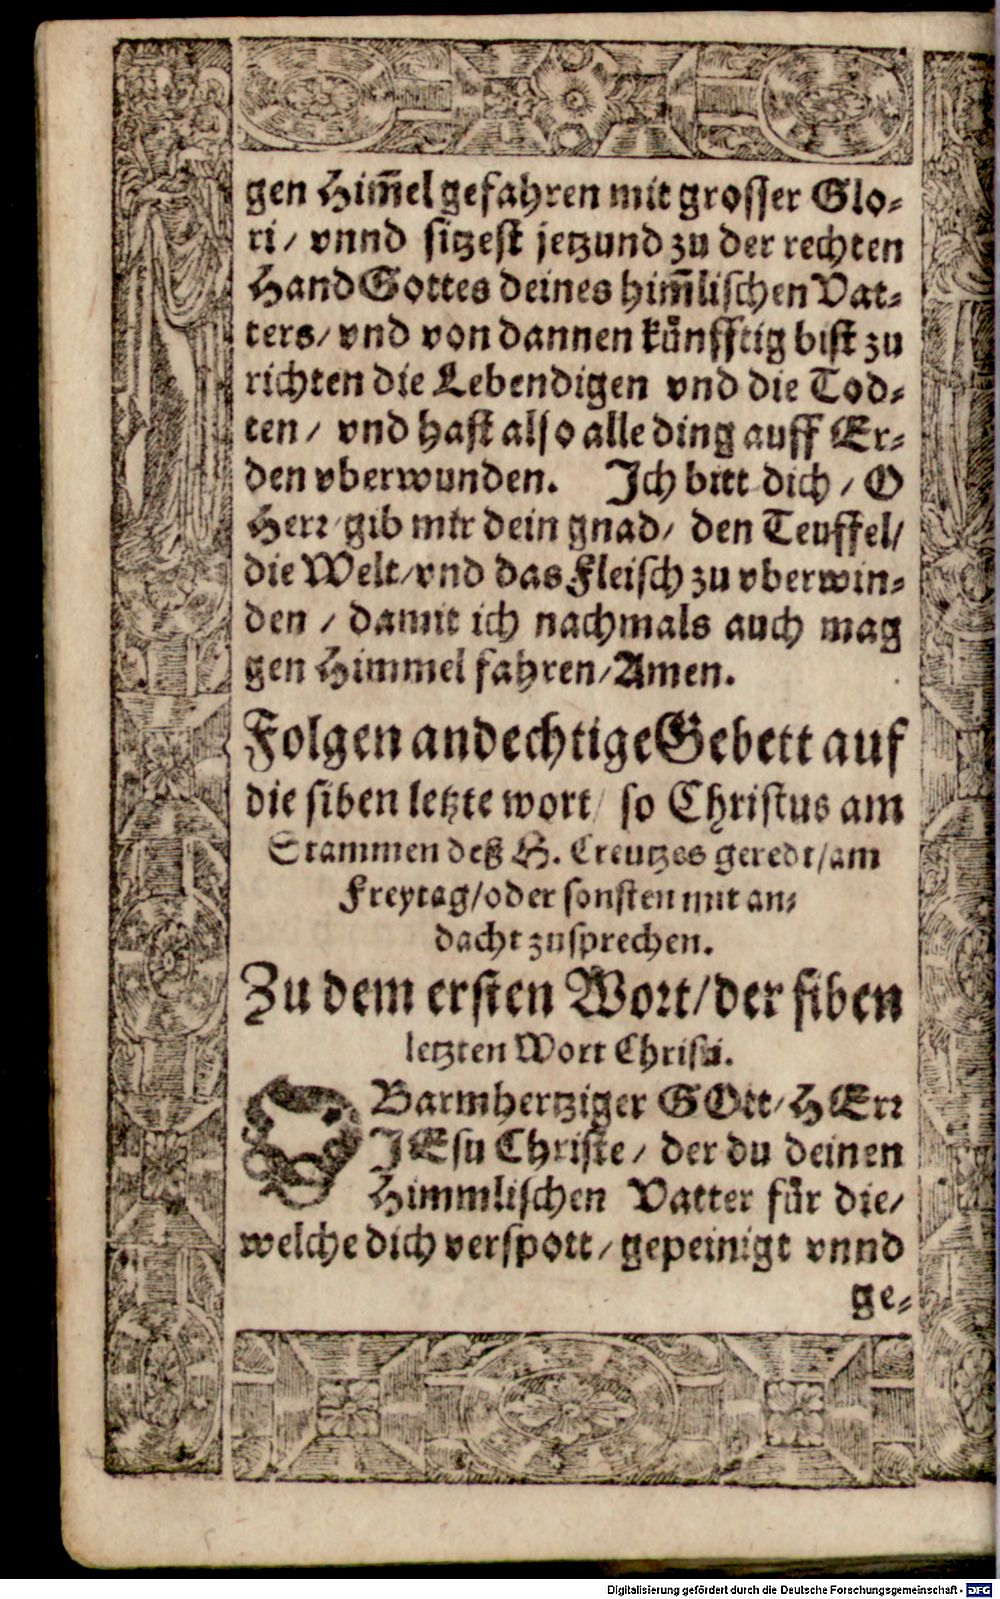 gen Him̃el gefahren mit grosser Glo⸗
ri / vnnd sitzest jetzund zu der rechten
Hand Gottes deines him̃lischen Vat⸗
ters / vnd von dannen kůnfftig bist zu
richten die Lebendigen vnd die Tod⸗
ten / vnd hast also alle ding auff Er⸗
den vberwunden. Ich bitt dich / O
Herr gib mir dein gnad / den Teuffel /
die Welt / vnd das Fleisch zu vberwin⸗
den / damit ich nachmals auch mag
gen Himmel fahren / Amen.
Folgen andechtige Gebett auf
die siben letzte wort / so Christus am
Stammen deß H. Creutzes geredt / am
Freytag / oder sonsten mit an⸗
dacht zusprechen.
Zu dem ersten Wort / der siben
letzten Wort Christi.
O Barmhertziger GOtt / HErr
JEsu Christe / der du deinen
Himmlischen Vatter fůr die /
welche dich verspott / gepeinigt vnnd
ge⸗
Digitalisierung gefördert durch die Deutsche Forschungsgemeinschaft - DFG